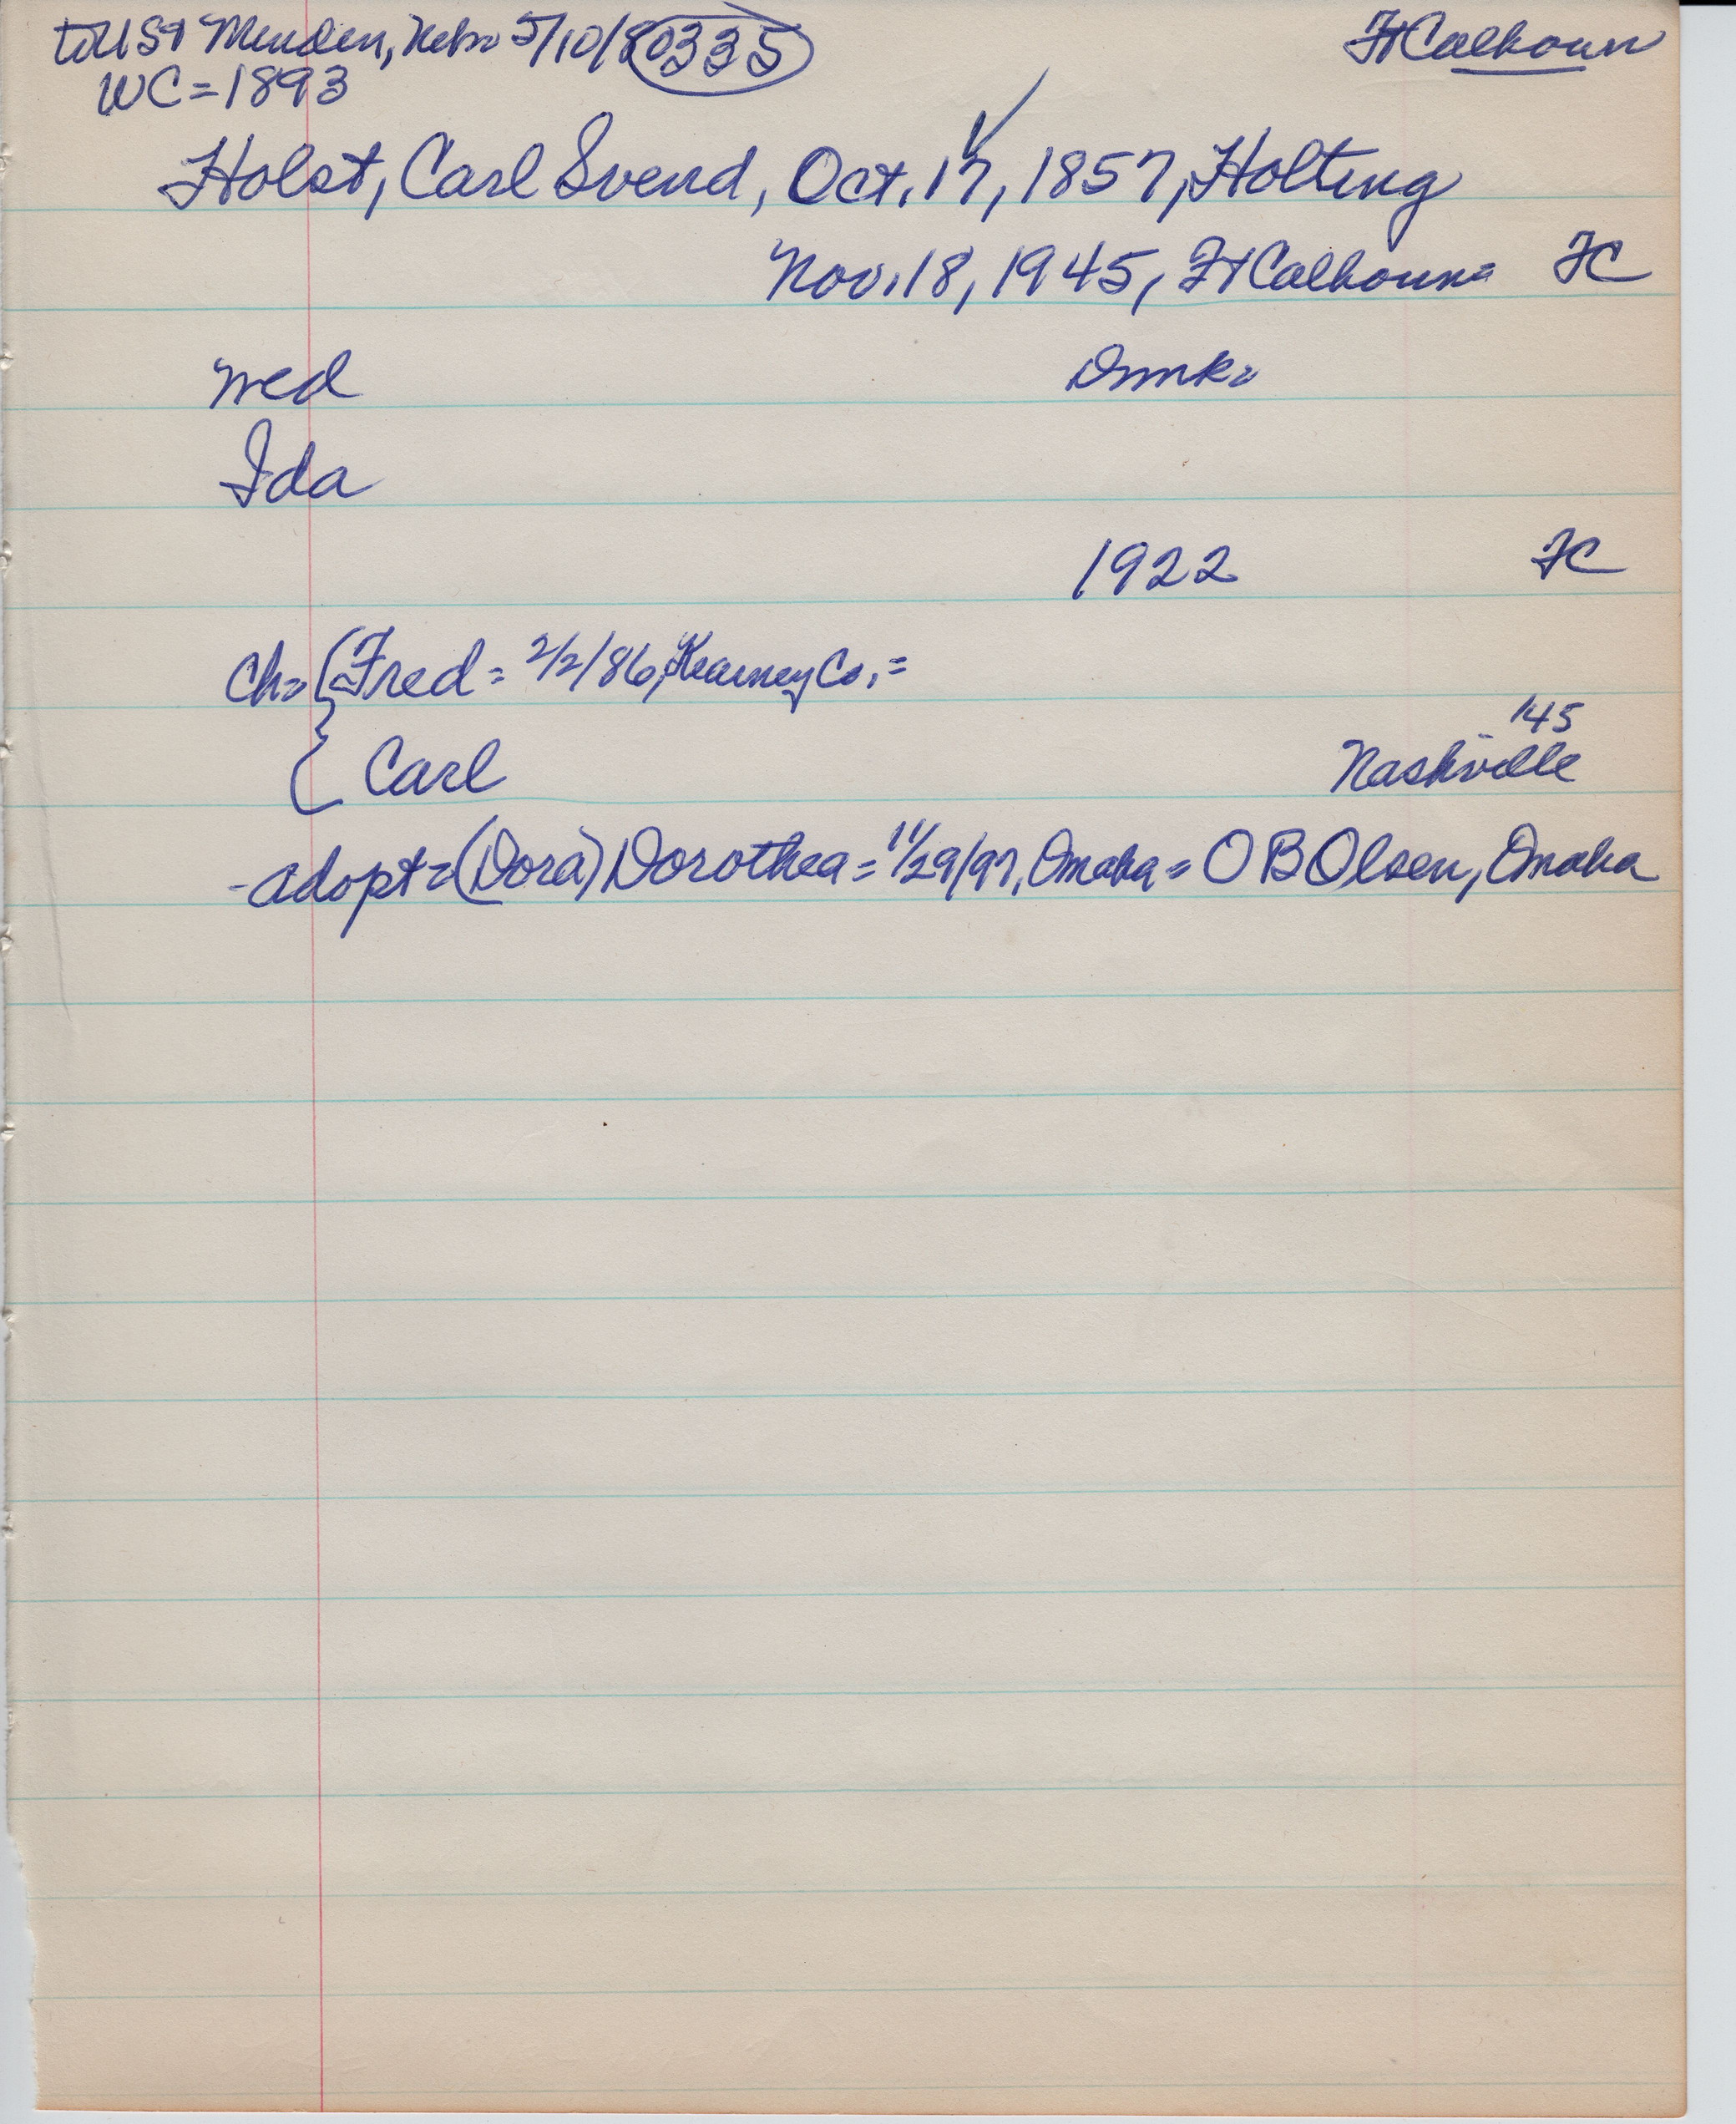 to US & Menden, Nebr 5/10/80 335 Ft Calhoun
WC = 1893
Holst, Carl Svend, Oct. 17, 1857, Holting
Nov. 18, 1945, Ft Calhoun = FC
wed Dnmk.
Ida
1922 FC
Ch = { Fred = 2/2/86, Kearney Co. =
'45
{ Carl Nashville
- adopt = (Dora) Dorothea = 11/29/97, Omaha = O B Olsen, Omaha